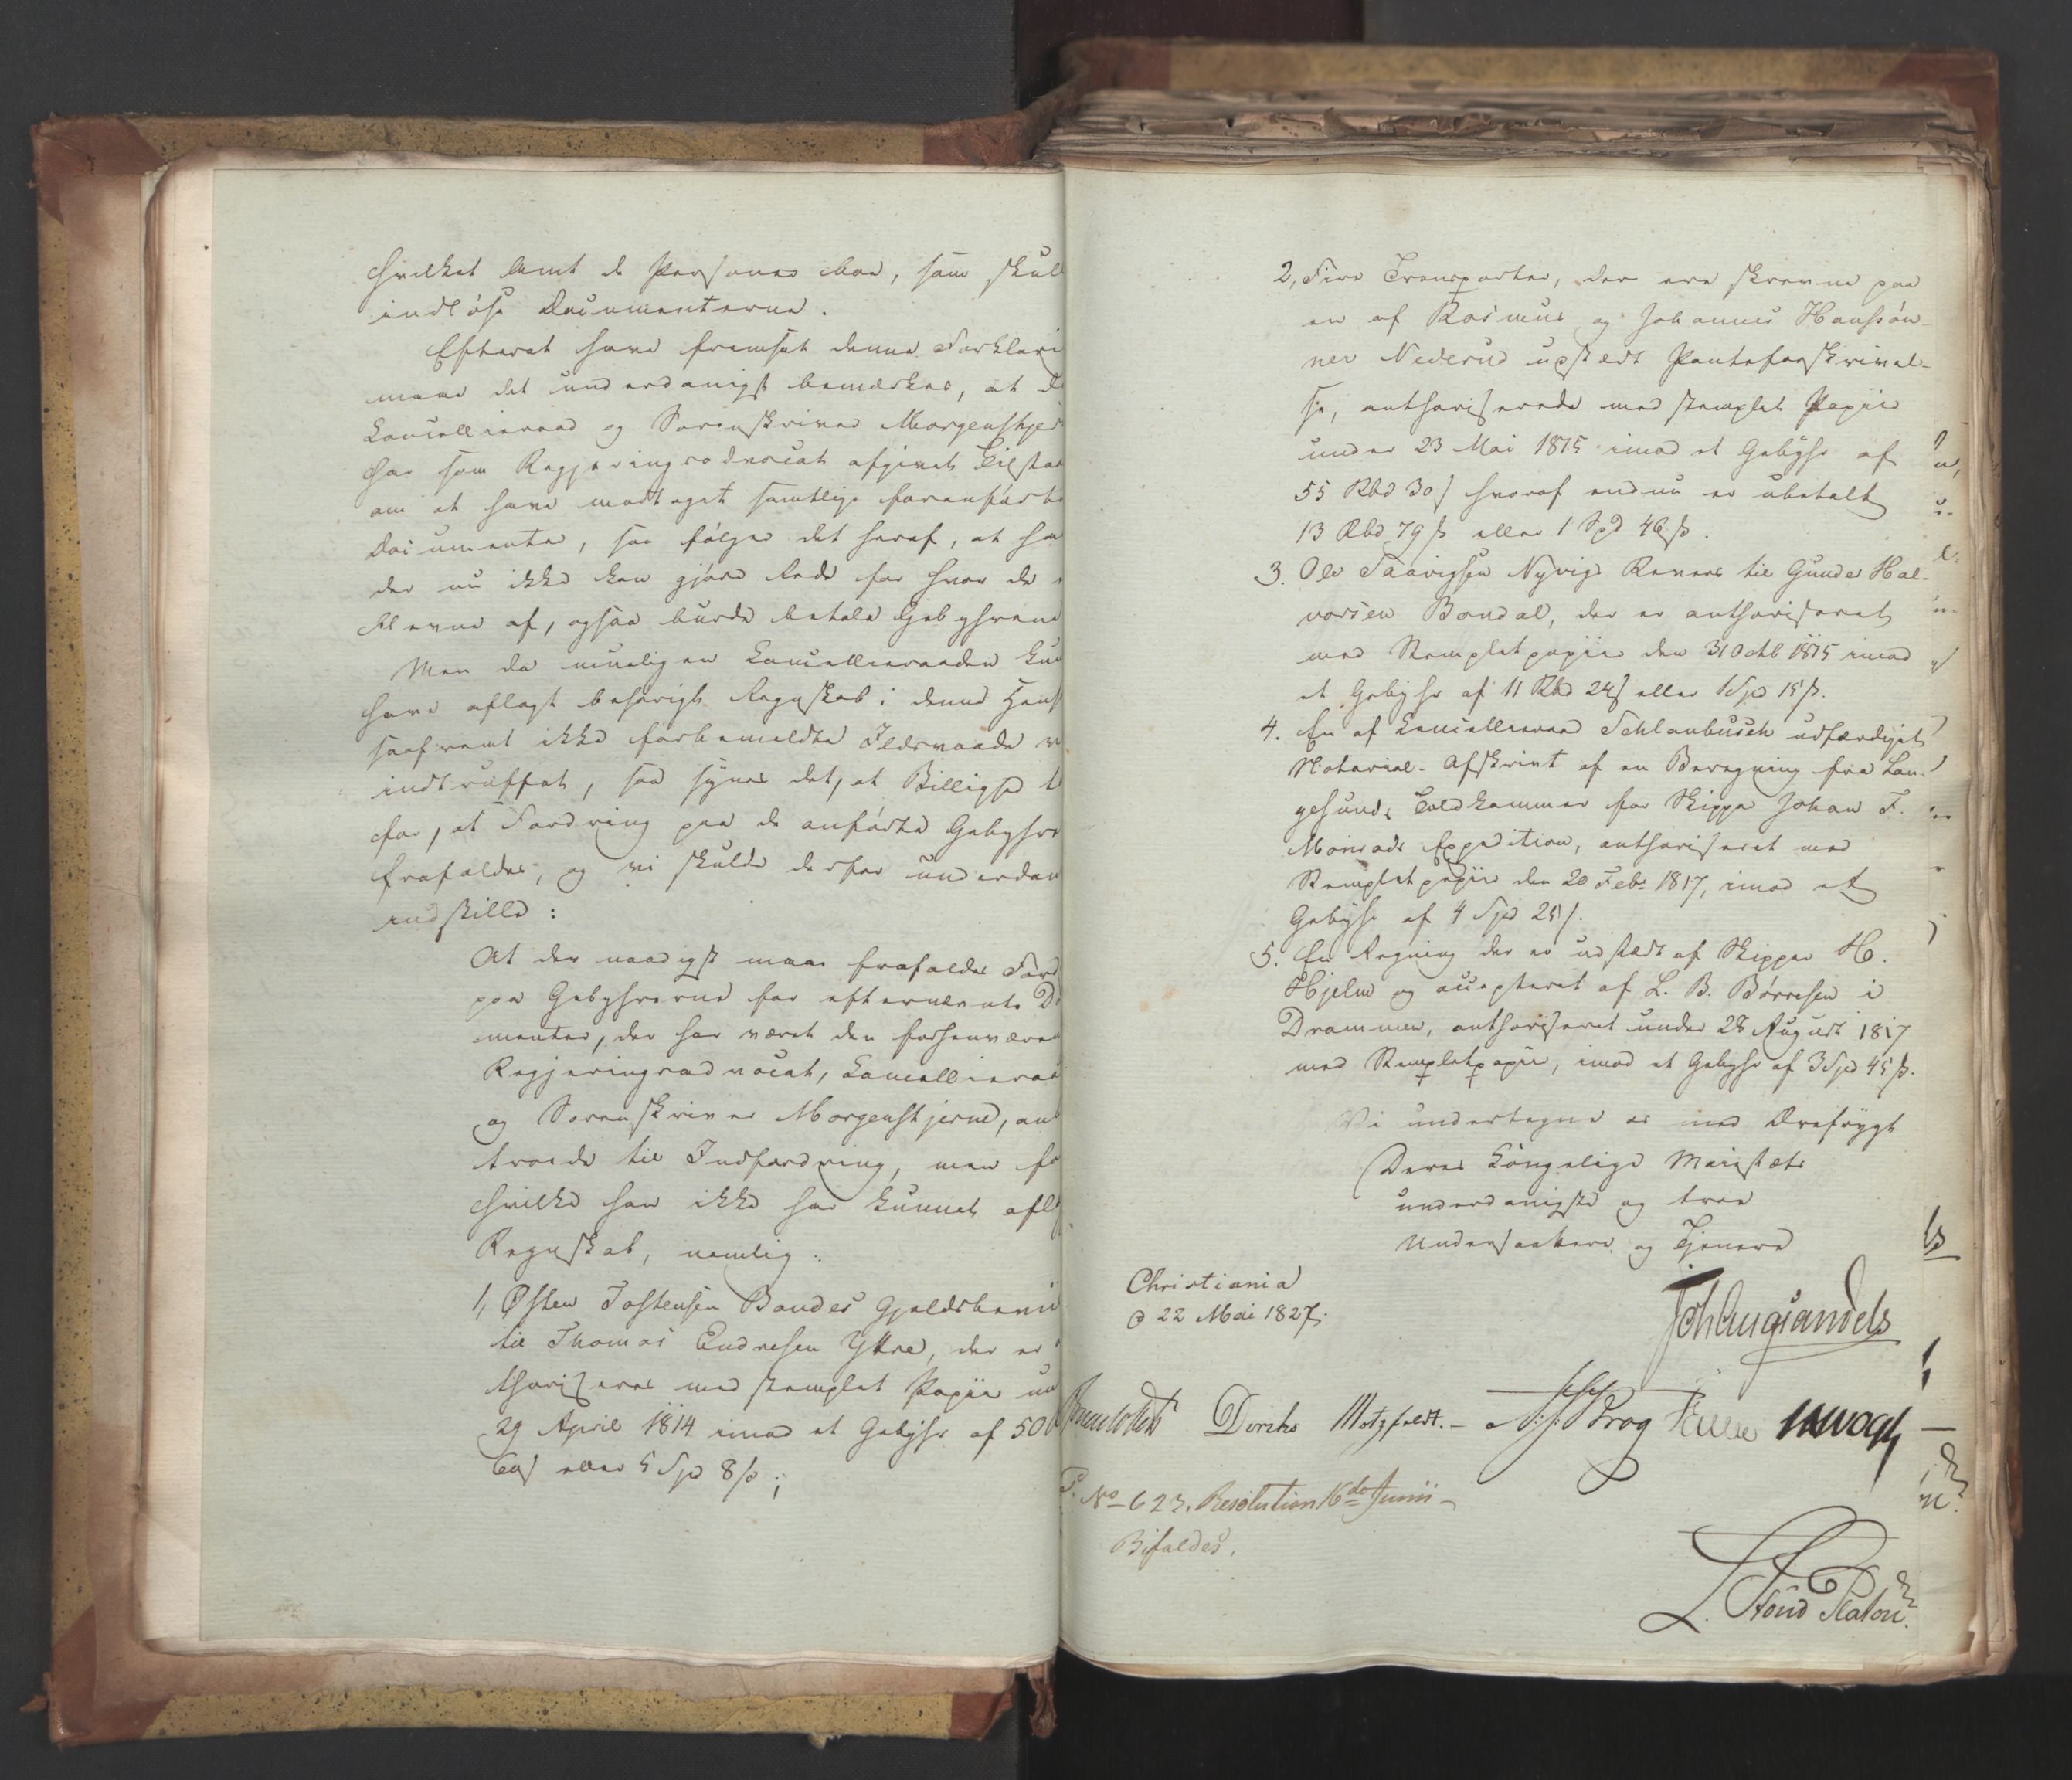 hvilket Amt de Personer boe, som skul
indløse Documenterne.
Efterat have fremsat denne Forklari
maae det underdanigst bemærkes, at d
Cancellieraad og Sorenskriver Morgenstjer
har som Regjeringsadvocat afgivet Tilstaa
om at have modtaget samtlige foranførte
Documenter, saa følger det heraf, at ha
der nu ikke kan gjøre Rede for hvor de
blevne af, ogsaa burde betale Gebyhrene
Men da rimeligen Cancellieraaden kun
have aflagt behørigt Regnskab i denne Hens
saafremt ikke forbemeldte Ildsvaade v
indtruffet, saa synes det, at Billighed t
for, at Fordring paa de anførte Gebyhre
frafaldes, og vi skulde derfor underdan
indstille:
At der naadigst maae frafaldes Ford
paa Gebyhrerne for efternævnte Do
menter, der har været den forhenvære
Regjeringsadvocat, Cancellieraa
og Sorenskriver Morgenstjerne, an
troede til Indfordring, men fo
hvilke han ikke har kunnet afl
Regnskab, nemlig:
1, Østen Jostensen Bondes Gjeldsbevi
til Thomas Endresen Yttre, der er
thoriseret med stemplet Papiir un
29 April 1814 imod et Gebyhr af 50
eller 5 Spd 8 ß;
2, Fire Transporter, der ere skrevne paa
en af Rasmus og Johannes Hanssøn-
ner Nederud udstedt Panteforskrivel-
se, authoriserede med stemplet Papiir
under 23 Mai 1815 imod et Gebyhr af
55 Rbd 30 ß hvoraf endnu er ubetalt
13 Rbd 79 ß eller 1 Spd 46 ß.
3. Ole Taarigsen Nyvigs Revers til Gunder Hal-
vorsen Bondal, der er authoriseret
med Stempletpapiir den 31 Octb 1815 imod
et Gebyhr af 11 Rbd 24 ß eller 1 Spd 15 ß.
4. En af Cancellieraad Schlanbusch udfærdiget
Notarial-Afskrivt af en Beregning fra Lan-
gesunds Toldkammer for Skipper Johan F.
Monrads Expedition, authoriseret med
Stempletpapiir den 20 Febr 1817, imod et
Gebyhr af 4 Spd 25 ß.
5. En Regning der er udstædt af Skipper H.
Hjelm og accepteret af L. B. Børresen i
Drammen, authoriseret under 28 August 1817
med Stempletpapiir, imod et Gebyhr af 3 Spd 45 ß.
Vi undertegne os med Ærefrygt
Deres Kongelige Majestæts
underdanigste og troe
Undersaatter og Tjenere
Christiania
d 22 Mai 1827.
Joh Aug Sandels
Diriks Motzfeldt.
P. No 623. Resolution 16de Junii
Bifaldes.